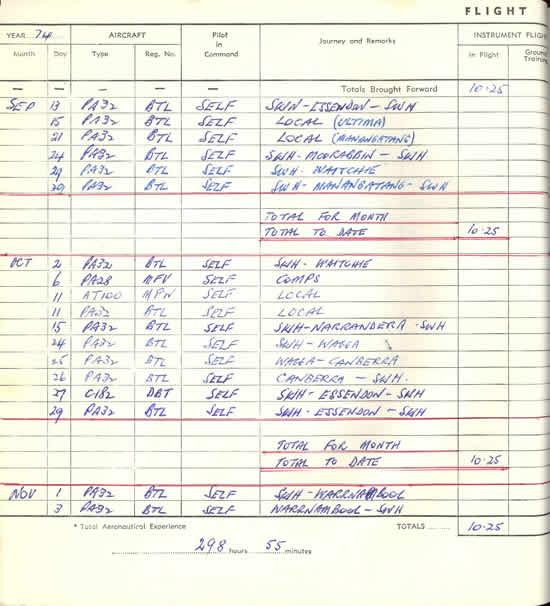 FLIGHT
YEAR 74 AIRCRAFT Pilot in Command Journey and Remarks INSTRUMENT FLIGH
Month Day Type Reg. No. In Flight Ground Training
— — — — — Totals Brought Forward 10·25
SEP 13 PA32 BTL SELF SWH-ESSENDON-SWH
15 PA32 BTL SELF LOCAL (ULTIMA)
21 PA32 BTL SELF LOCAL (MANANGATANG)
24 PA32 BTL SELF SWH-MOORABBIN-SWH
29 PA32 BTL SELF SWH-WAITCHIE
29 PA32 BTL SELF SWH-MANANGATANG-SWH
TOTAL FOR MONTH
TOTAL TO DATE 10·25
OCT 2 PA32 BTL SELF SWH-WAITCHIE
6 PA28 MFV SELF COMPS
11 AT100 MPN SELF LOCAL
11 PA32 BTL SELF LOCAL
15 PA32 BTL SELF SWH-NARRANDERA-SWH
24 PA32 BTL SELF SWH-WAGGA
25 PA32 BTL SELF WAGGA-CANBERRA
26 PA32 BTL SELF CANBERRA-SWH.
27 C182 DBT SELF SWH-ESSENDON-SWH
29 PA32 BTL SELF SWH-ESSENDON-SWH
TOTAL FOR MONTH
TOTAL TO DATE 10·25
NOV 1 PA32 BTL SELF SWH-WARRNAMBOOL
3 PA32 BTL SELF WARRNAMBOOL-SWH
* Total Aeronautical Experience TOTALS ........ 10·25
298 hours 55 minutes